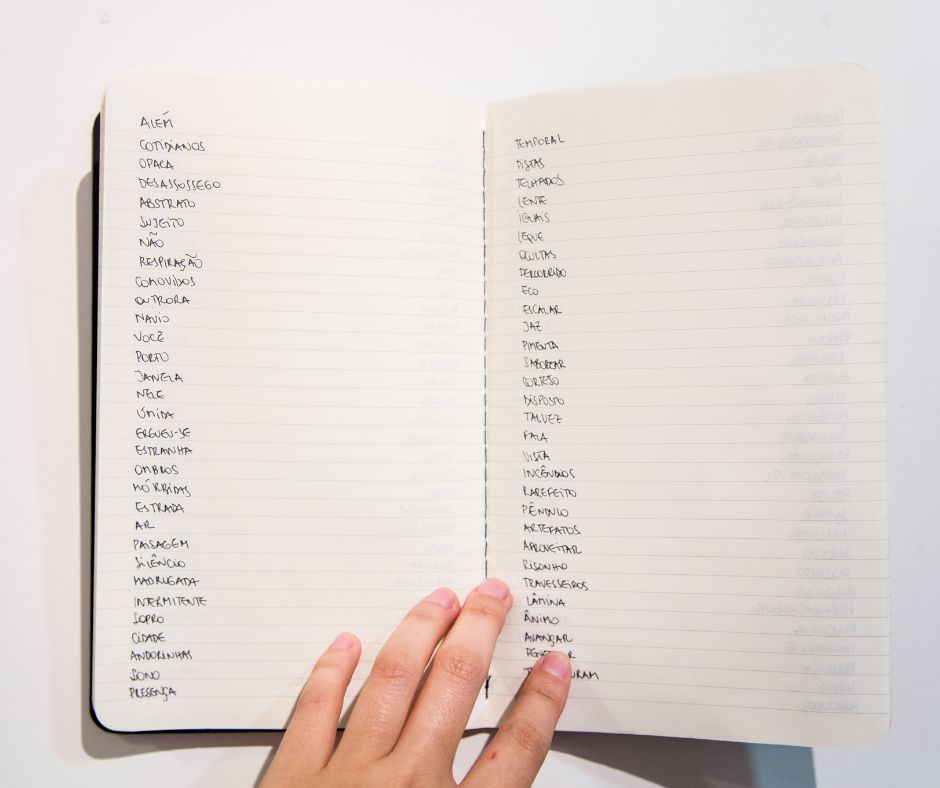 ALÉM
COTIDIANOS
OPACA
DESASSOSSEGO
ABSTRATO
SUJEITO
NÃO
RESPIRAÇÃO
COMOVIDOS
OUTRORA
NAVIO
VOCÊ
PORTO
JANELA
NELE
ÚMIDA
ERGUEU-SE
ESTRANHA
OMBROS
MÓRBIDAS
ESTRADA
AR
PAISAGEM
SILÊNCIO
MADRUGADA
INTERMITENTE
SOPRO
CIDADE
ANDORINHAS
SONO
PRESENÇA
TEMPORAL
PISTAS
TELHADOS
LENTE
IGUAIS
LEQUE
OCULTAS
PERCORRIDO
ECO
ESCALAR
JAZ
PIMENTA
SABOREAR
CORTEJO
DISPOSTO
TALVEZ
FALA
VISTA
INCÊNDIOS
RAREFEITO
PÊNDULO
ARTEFATOS
APROVEITAR
RISONHO
TRAVESSEIROS
LÂMINA
ÂNIMO
AVANÇAR